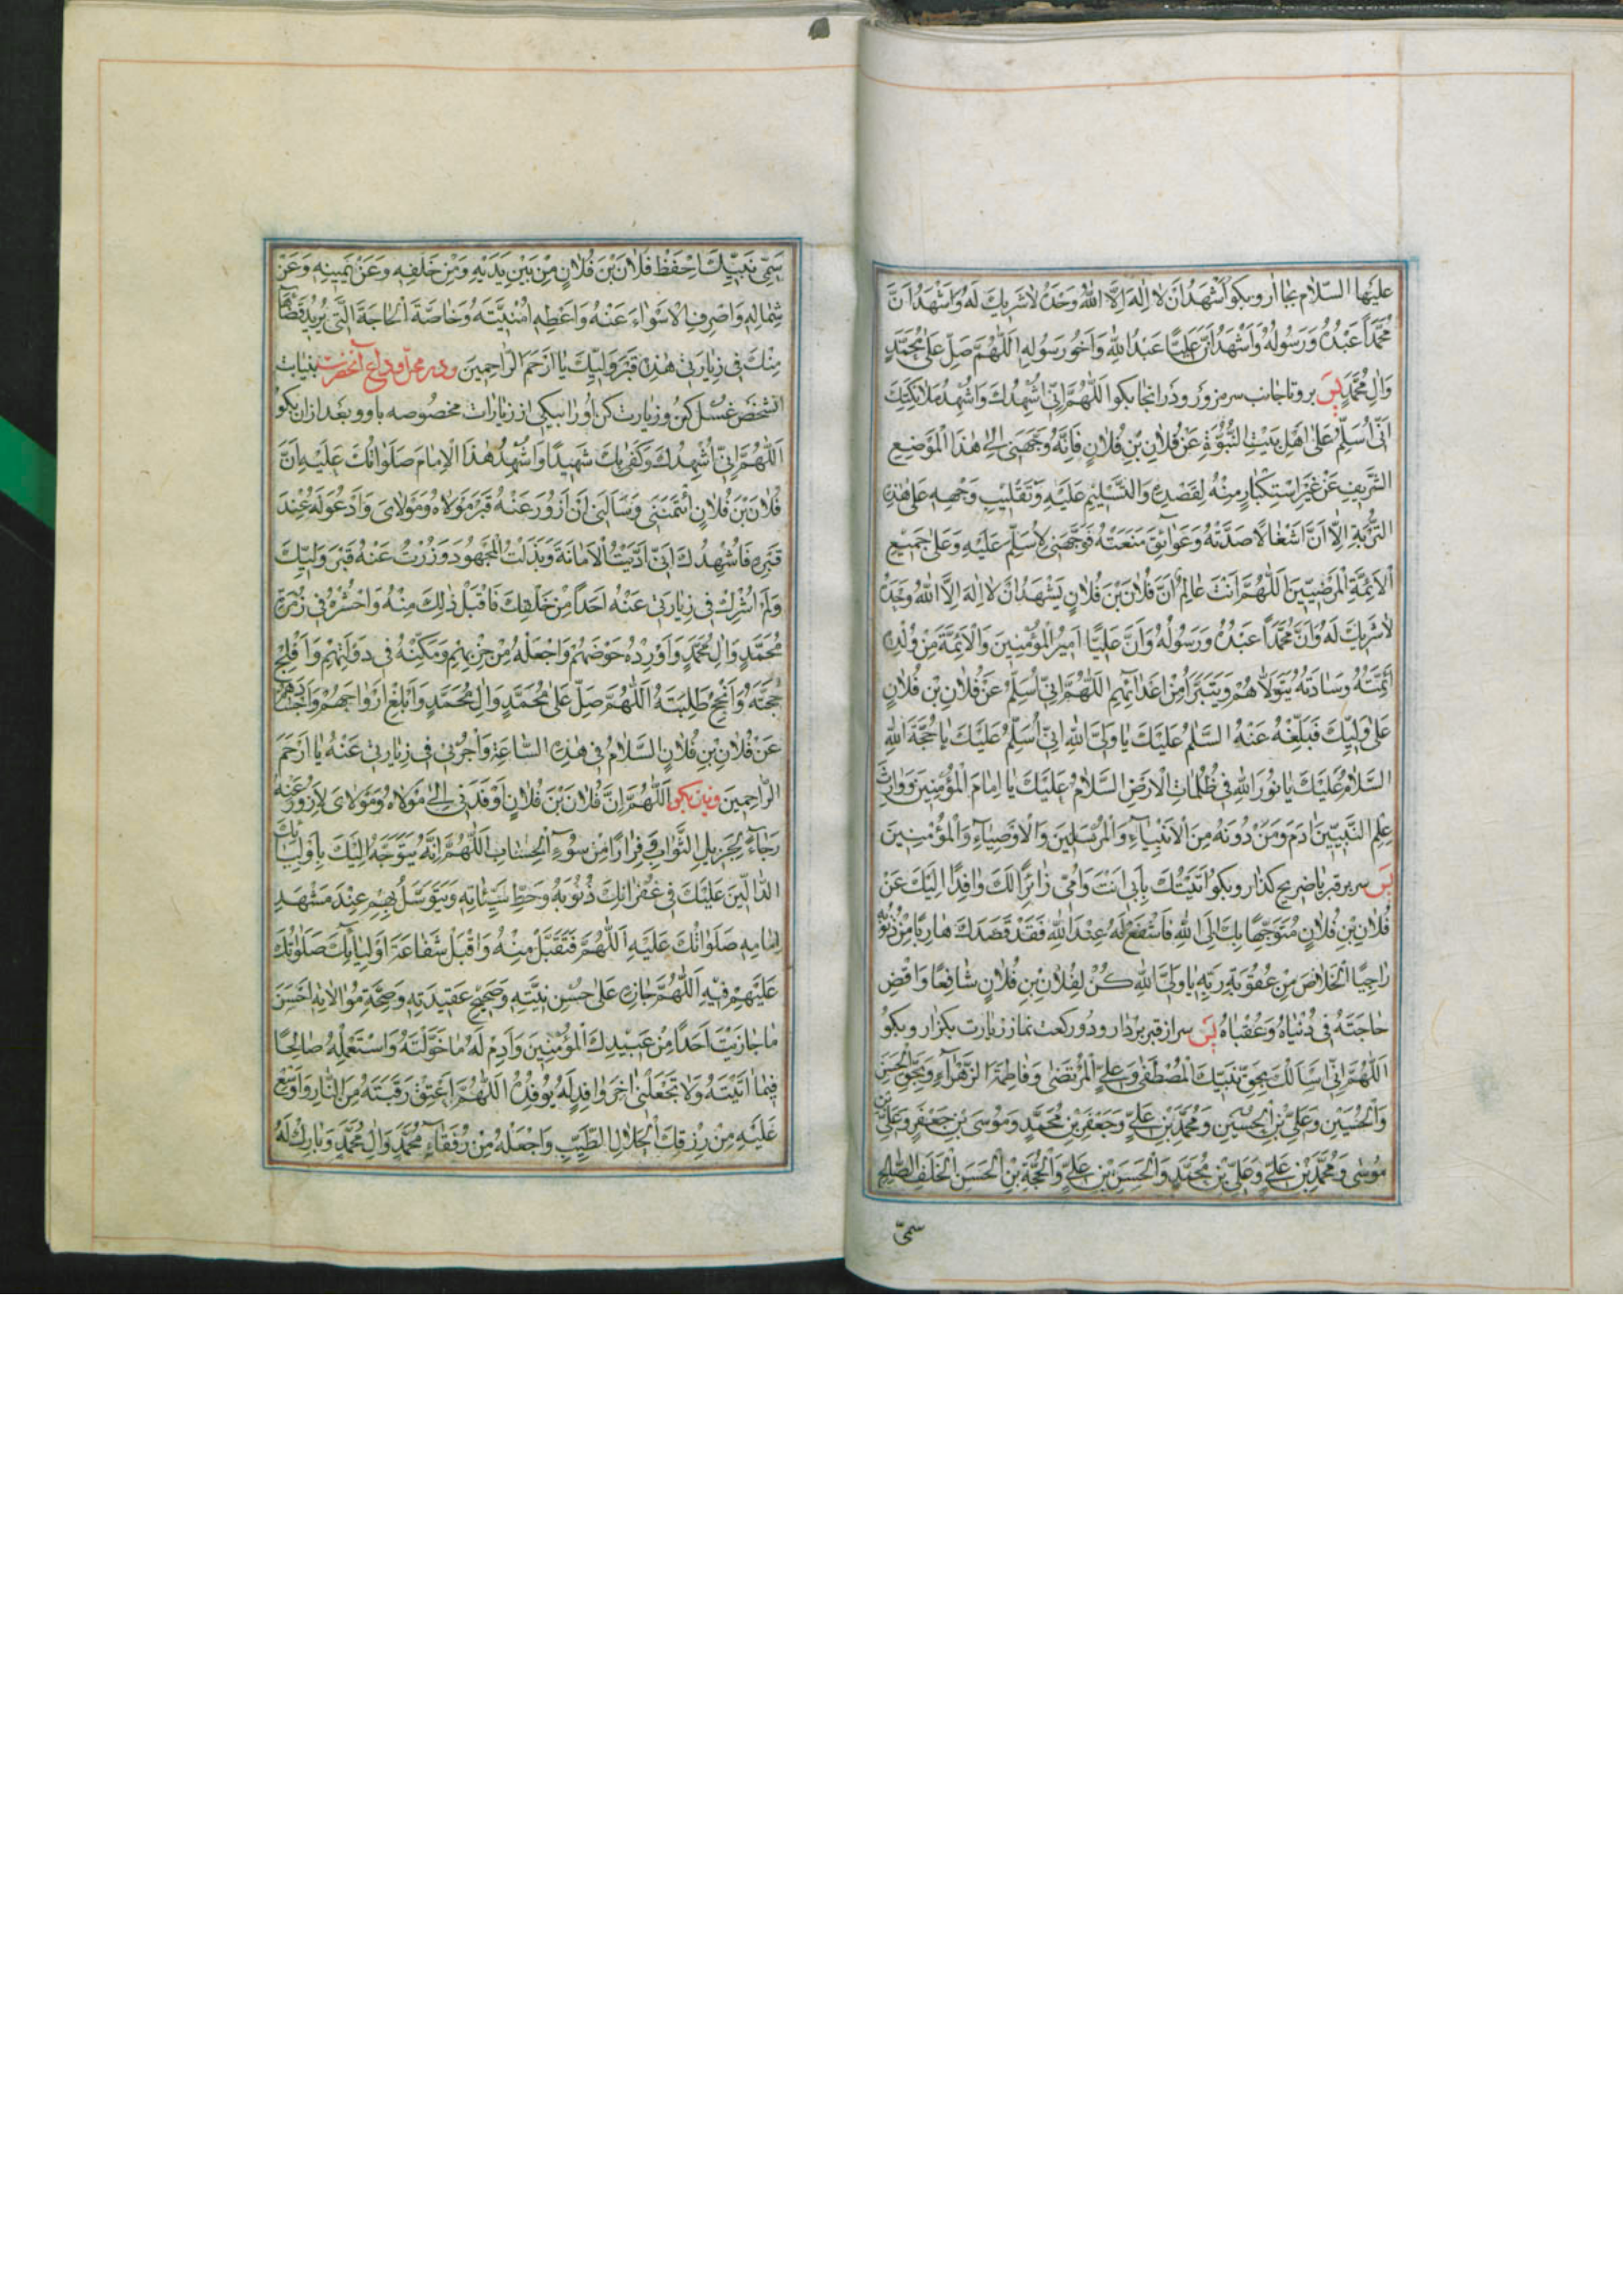 علیها السّلام بجا آر و بکو اَشْهَدُ اَنْ لا اِلٰهَ اِلاَّ اللهُ وَحْدَهُ لا شَریكَ لَهُ وَاَشْهَدُ اَنَّ
مُحَمَّداً عَبْدُهُ وَرَسُولُهُ وَاَشْهَدُ اَنَّ عَلِیًّا عَبْدُ اللهِ وَاَخُو رَسُولِهِ اَللّٰهُمَّ صَلِّ عَلیٰ مُحَمَّدٍ
وَالِ مُحَمَّدٍ پس برو تا جانب سر مزور و در انجا بکو اَللّٰهُمَّ اِنّی اُشْهِدُكَ وَاُشْهِدُ مَلائِکَتِكَ
اَنّی اُسَلِّمُ عَلیٰ اَهْلِ بَیْتِ النُّبُوَّةِ عَنْ فُلانِ بْنِ فُلانٍ فَاِنَّهُ وَجَّهَنی اِلیٰ هٰذَا الْمَوْضِعِ
الشَّریفِ عَنْ غَیْرِ اسْتِکْبارٍ مِنْهُ لِقَصْدِهِ وَالتَّسْلیمِ عَلَیْهِ وَتَقْلیبِ وَجْهِهِ عَلیٰ هٰذِهِ
التُّرْبَةِ اِلاّ اَنَّ اَشْغالاً صَدَّتْهُ وَعَوائِقَ مَنَعَتْهُ فَوَجَّهَنی لِاُسَلِّمَ عَلَیْهِ وَعَلیٰ جَمیعِ
الْاَئِمَّةِ الْمَرْضِیّینَ اَللّٰهُمَّ اَنْتَ عالِمٌ اَنَّ فُلانَ بْنَ فُلانٍ یَشْهَدُ اَنْ لا اِلٰهَ اِلاَّ اللهُ وَحْدَهُ
لا شَریكَ لَهُ وَاَنَّ مُحَمَّداً عَبْدُهُ وَرَسُولُهُ وَاَنَّ عَلِیًّا اَمیرُ الْمُؤْمِنینَ وَالْاَئِمَّةَ مِنْ وُلْدِهِ
اَئِمَّتُهُ وَسٰادَتُهُ یَتَوَلاّهُمْ وَیَتَبَرَّاُ مِنْ اَعْدائِهِمْ اَللّٰهُمَّ اِنّی اُسَلِّمُ عَنْ فُلانِ بْنِ فُلانٍ
عَلیٰ وَلِیِّكَ فَبَلِّغْهُ عَنْهُ السَّلٰمُ عَلَیْكَ یا وَلِیَّ اللهِ اِنّی اُسَلِّمُ عَلَیْكَ یا حُجَّةَ اللهِ
السَّلامُ عَلَیْكَ یا نُورَ اللهِ فی ظُلُماتِ الْاَرْضِ السَّلامُ عَلَیْكَ یا اِمامَ الْمُؤْمِنینَ وَوارِثَ
عِلْمِ النَّبِیّینَ ادَمَ وَمَنْ دُونَهُ مِنَ الْاَنْبِیاءِ وَالْمُرْسَلینَ وَالْاَوْصِیاءِ وَالْمُؤْمِنینَ
پس سر بر قبر یا ضریح کذار و بکو اَتَیْتُكَ بِاَبی اَنْتَ وَاُمّی زائِرًا لَكَ وافِدًا اِلَیْكَ عَنْ
فُلانِ بْنِ فُلانٍ مُتَوَجِّهًا بِكَ اِلَی اللهِ فَاشْفَعْ لَهُ عِنْدَ اللهِ فَقَدْ قَصَدَكَ هارِبًا مِنْ ذُنُوبِهِ
راجِیًا الْخَلاصَ مِنْ عُقُوبَةِ رَبِّهِ یا وَلِیَّ اللهِ کُنْ لِفُلانِ بْنِ فُلانٍ شافِعًا وَاقْضِ
حاجَتَهُ فی دُنْیاهُ وَعُقْباهُ پس سر از قبر بردار و دو رکعت نماز زیارت بکزار و بکو
اَللّٰهُمَّ اِنّی اَسْاَلُكَ بِحَقِّ نَبِیِّكَ الْمُصْطَفیٰ وَعَلِیٍّ الْمُرْتَضیٰ وَفاطِمَةَ الزَّهْراءِ وَبِحَقِّ الْحَسَنِ
وَالْحُسَیْنِ وَعَلِیِّ بْنِ الْحُسَیْنِ وَمُحَمَّدِ بْنِ عَلِیٍّ وَجَعْفَرِ بْنِ مُحَمَّدٍ وَمُوسَی بْنِ جَعْفَرٍ وَعَلِیِّ بْنِ
مُوسیٰ وَمُحَمَّدِ بْنِ عَلِیٍّ وَعَلِیِّ بْنِ مُحَمَّدٍ وَالْحَسَنِ بْنِ عَلِیٍّ وَالْحُجَّةِ بْنِ الْحَسَنِ الْخَلَفِ الصّٰالِحِ
سَمِیِّ
سَمِیِّ نَبِیِّكَ اِحْفَظْ فُلانَ بْنَ فُلانٍ مِنْ بَیْنِ یَدَیْهِ وَمِنْ خَلْفِهِ وَعَنْ یَمینِهِ وَعَنْ
شِمالِهِ وَاصْرِفِ الْاَسْواءَ عَنْهُ وَاَعْطِهِ اُمْنِیَّتَهُ وَخاصَّةَ الْحاجَةِ الَّتی یُریدُ قَضاءَها
مِنْكَ فی زِیارَتی هٰذِهِ قَبْرَ وَلِیِّكَ یا اَرْحَمَ الرّاحِمینَ ودر محل وداع آنحضرت بنیابت
آنشخص غسل کن و زیارت کن او را بیکی از زیارات مخصوصه باو و بعد ازان بکو
اَللّٰهُمَّ اِنّی اُشْهِدُكَ وَکَفیٰ بِكَ شَهیدًا وَاُشْهِدُ هٰذَا الْاِمامَ صَلَواتُكَ عَلَیْهِ اَنَّ
فُلانَ بْنَ فُلانٍ ائْتَمَنَنی وَسَاَلَنی اَنْ اَزُورَ عَنْهُ قَبْرَ مَوْلاهُ وَمَوْلایَ وَاَدْعُوَ لَهُ عِنْدَ
قَبْرِهِ فَاُشْهِدُكَ اَنّی اَدَّیْتُ الْاَمانَةَ وَبَذَلْتُ الْمَجْهُودَ وَزُرْتُ عَنْهُ قَبْرَ وَلِیِّكَ
وَلَمْ اُشْرِكْ فی زِیارَتی عَنْهُ اَحَداً مِنْ خَلْقِكَ فَاقْبَلْ ذٰلِكَ مِنْهُ وَاحْشُرْهُ فی زُمْرَةِ
مُحَمَّدٍ وَالِ مُحَمَّدٍ وَاَوْرِدْهُ حَوْضَهُمْ وَاجْعَلْهُ مِنْ حِزْبِهِمْ وَمَکِّنْهُ فی دَوْلَتِهِمْ وَاَفْلِجْ
حُجَّتَهُ وَاَنْجِحْ طَلِبَتَهُ اَللّٰهُمَّ صَلِّ عَلیٰ مُحَمَّدٍ وَالِ مُحَمَّدٍ وَاَبْلِغْ اَرْواحَهُمْ وَاَجْسادَهُمْ
عَنْ فُلانِ بْنِ فُلانٍ السَّلامَ فی هٰذِهِ السّاعَةِ وَاْجُرْنی فی زِیارَتی عَنْهُ یا اَرْحَمَ
الرّاحِمینَ ونیز بکو اَللّٰهُمَّ اِنَّ فُلانَ بْنَ فُلانٍ اَوْفَدَنی اِلیٰ مَوْلاهُ وَمَوْلایَ لِاَزُورَ عَنْهُ
رَجاءً لِجَزیلِ الثَّوابِ وَفِرارًا مِنْ سُوءِ الْحِسابِ اَللّٰهُمَّ اِنَّهُ یَتَوَجَّهُ اِلَیْكَ بِاَوْلِیائِكَ
الدّالّینَ عَلَیْكَ فی غُفْرانِكَ ذُنُوبَهُ وَحَطِّ سَیِّئاتِهِ وَیَتَوَسَّلُ بِهِمْ عِنْدَ مَشْهَدِ
اِمامِهِ صَلَواتُكَ عَلَیْهِ اَللّٰهُمَّ فَتَقَبَّلْ مِنْهُ وَاقْبَلْ شَفاعَةَ اَوْلِیائِكَ صَلَواتُكَ
عَلَیْهِمْ فیهِ اَللّٰهُمَّ جازِهِ عَلیٰ حُسْنِ نِیَّتِهِ وَصَحیحِ عَقیدَتِهِ وَصِحَّةِ مُوالاتِهِ اَحْسَنَ
ما جازَیْتَ اَحَداً مِنْ عَبیدِكَ الْمُؤْمِنینَ وَاَدِمْ لَهُ ما خَوَّلْتَهُ وَاسْتَعْمِلْهُ صالِحًا
فیما اتَیْتَهُ وَلا تَجْعَلْنی اخِرَ وافِدٍ لَهُ یُوفِدُهُ اَللّٰهُمَّ اَعْتِقْ رَقَبَتَهُ مِنَ النّارِ وَاَوْسِعْ
عَلَیْهِ مِنْ رِزْقِكَ الْحَلالِ الطَّیِّبِ وَاجْعَلْهُ مِنْ رُفَقاءِ مُحَمَّدٍ وَالِ مُحَمَّدٍ وَبارِكْ لَهُ